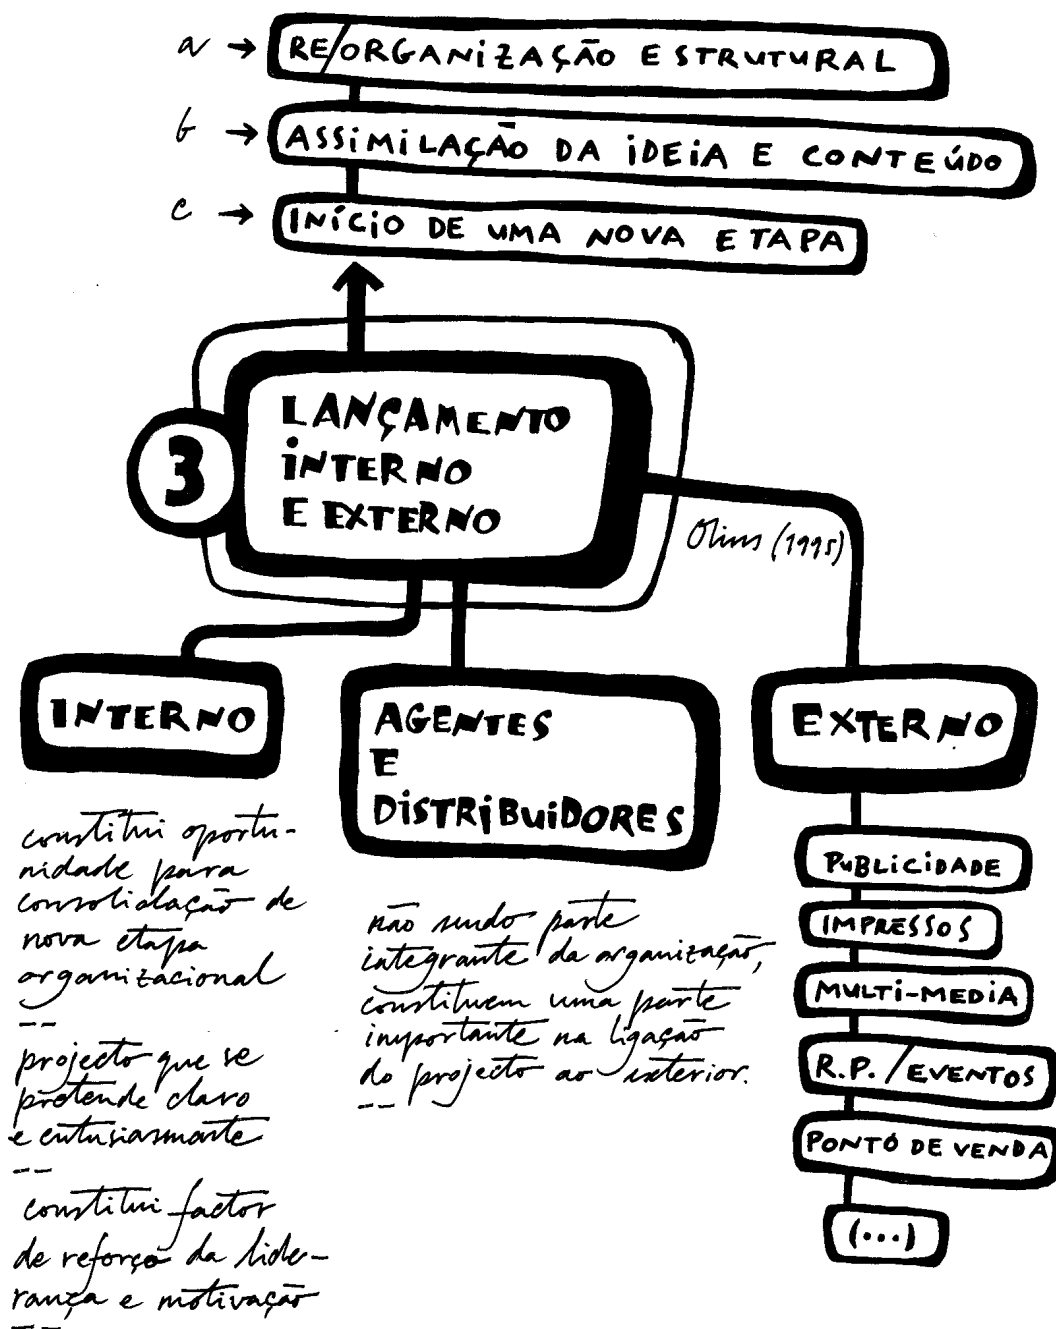 a → RE/ORGANIZAÇÃO ESTRUTURAL
b → ASSIMILAÇÃO DA IDEIA E CONTEÚDO
c → INÍCIO DE UMA NOVA ETAPA
3
LANÇAMENTO
INTERNO
E EXTERNO
Olins (1995)
INTERNO
constitui oportu-
nidade para
consolidação de
nova etapa
organizacional
--
projecto que se
pretende claro
e entusiasmante
--
constitui factor
de reforço da lide-
rança e motivação
--
AGENTES
E
DISTRIBUIDORES
não sendo parte
integrante da organização,
constituem uma parte
importante na ligação
do projecto ao exterior.
--
EXTERNO
PUBLICIDADE
IMPRESSOS
MULTI-MEDIA
R.P./EVENTOS
PONTO DE VENDA
(...)